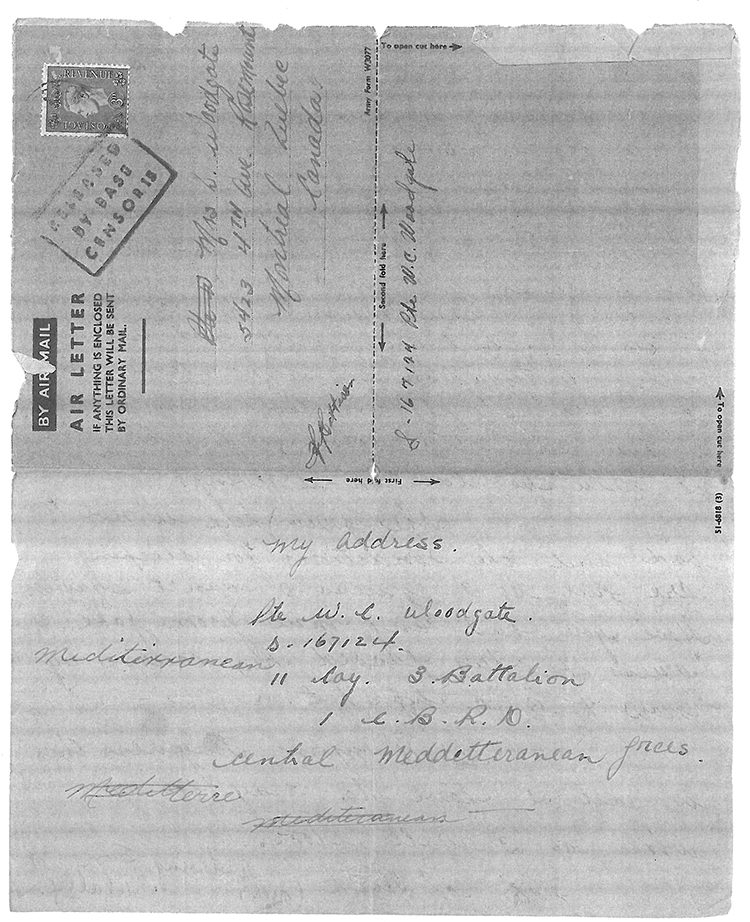 REVENUE
3D
POSTAGE
RELEASED
BY BASE
CENSOR IS
BY AIR MAIL
AIR LETTER
IF ANYTHING IS ENCLOSED
THIS LETTER WILL BE SENT
BY ORDINARY MAIL.
Mrs S. Woodgate
5423 4TH Ave. Rosemount
Montreal Quebec
Canada
Army Form W3077
To open cut here
Second fold here
S-167124 Pte W.C. Woodgate
To open cut here
First fold here
51-6818 (3)
My Address.
Pte W. C. Woodgate.
D-167124.
Mediterranean
11 Coy. 3. Battalion
1 C. B. R. D.
Central Meddetteranean forces.
Meditterre
Mediteranean